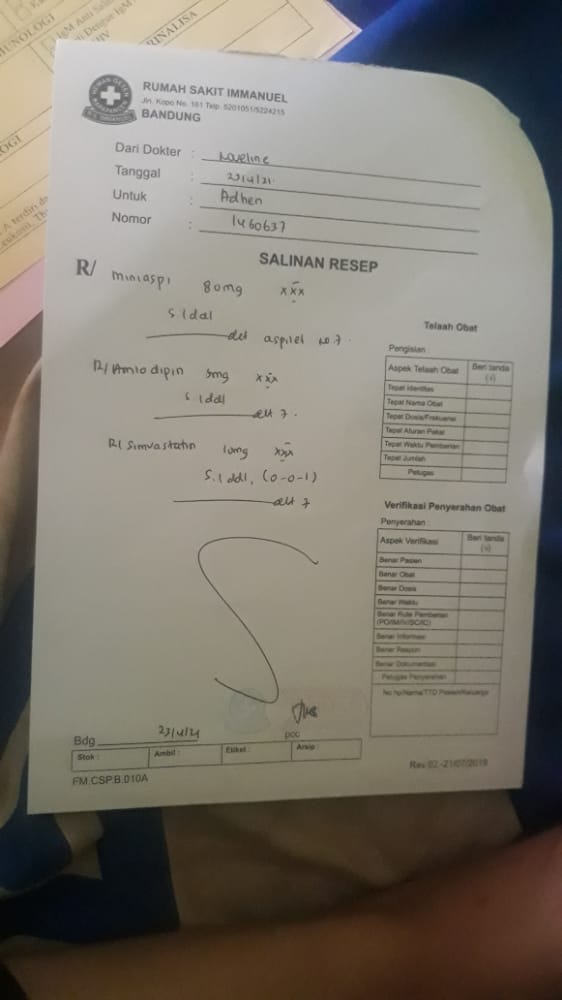 MUNOLOGI
RINALISA
OGI
RUMAH SAKIT IMMANUEL
Jln. Kopo No. 161 Telp. 5201051/5224215
BANDUNG
Dari Dokter :
Tanggal : 23/4/21
Untuk : Adhen
Nomor : 1460637
SALINAN RESEP
R/ miniaspi 80mg xxx
S.1dd1
det aspilet no.7.
R/ Amlodipin 5mg xxx
S 1dd1
det 7.
R/ Simvastatin 10mg xxx
S.1dd1, (0-0-1)
det 7
Telaah Obat
Pengisian :
Aspek Telaah Obat Beri tanda (v)
Tepat Identitas
Tepat Nama Obat
Tepat Dosis/Frekuensi
Tepat Aturan Pakai
Tepat Waktu Pemberian
Tepat Jumlah
Petugas
Verifikasi Penyerahan Obat
Penyerahan :
Aspek Verifikasi Beri tanda (v)
Benar Pasien
Benar Obat
Benar Dosis
Benar Waktu
Benar Rute Pemberian
(PO/IM/IV/SC/IC)
Benar Informasi
Benar Respon
Benar Dokumentasi
Petugas Penyerahan
No hp/Nama/TTD Pasien/Keluarga
Bdg 23/4/21
pcc
Stok : Ambil : Etiket : Arsip :
FM.CSP.B.010A
Rev 02 -21/07/2019